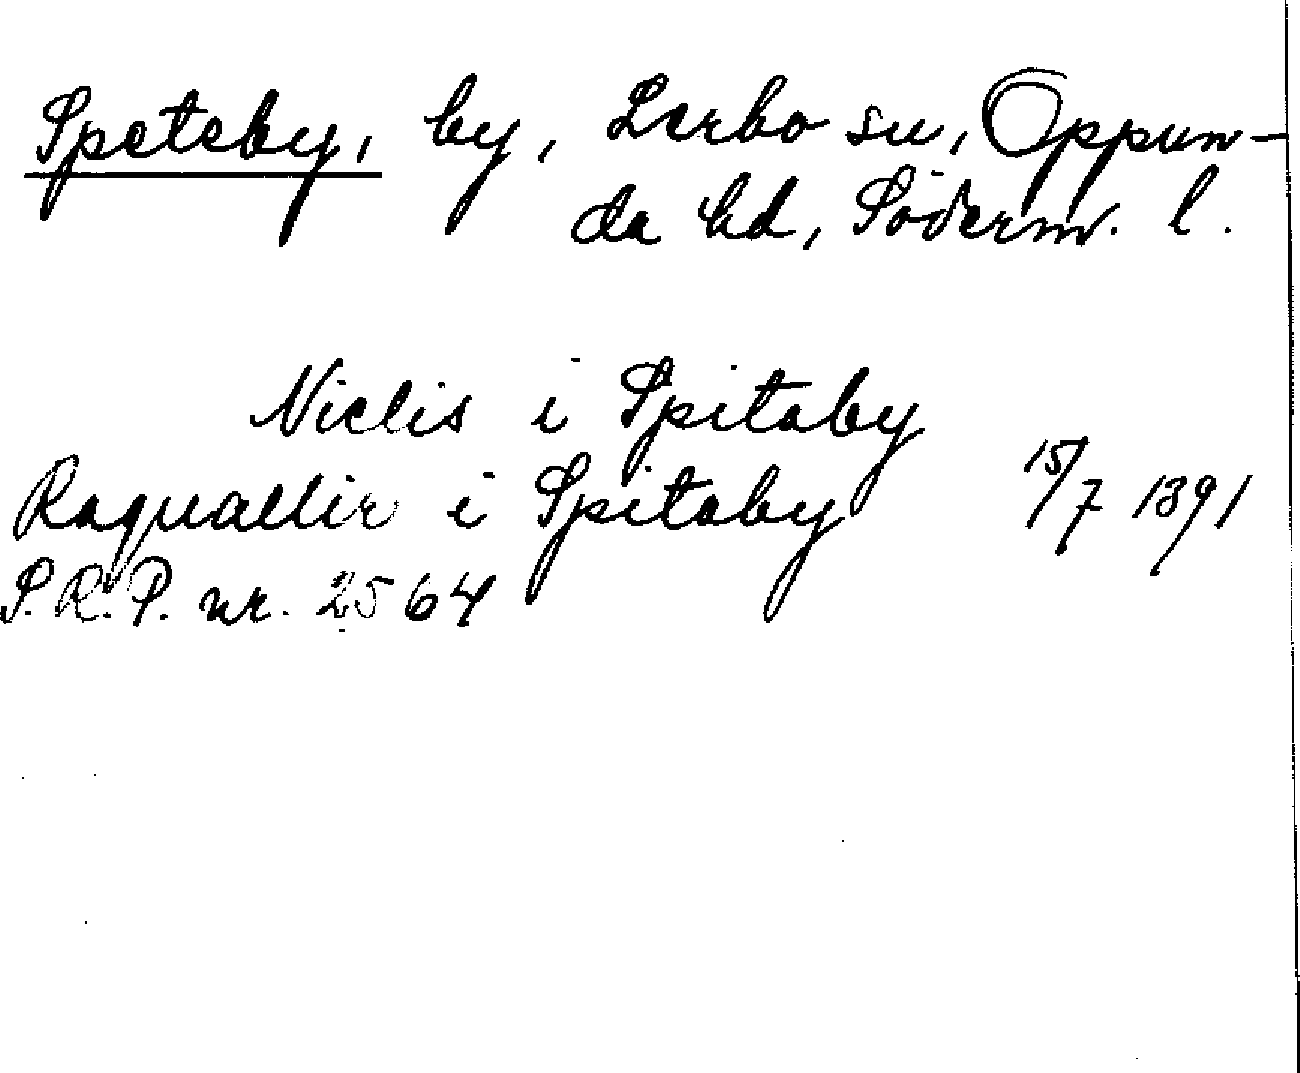 Speteby, by, Lerbo sn, Oppun-
da hd, Söderm. l.
Niclis i Spitaby
Raguallir i Spitaby 15/7 1391
S.R.P. nr. 2564